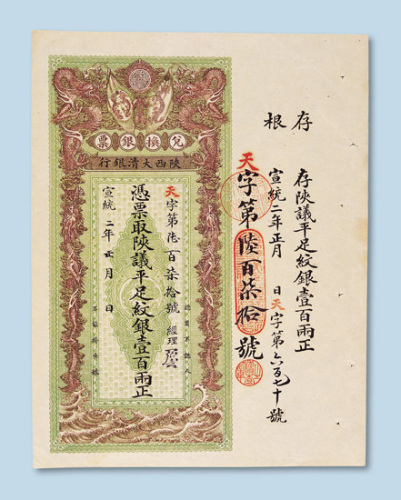 存根
存陝議平足紋銀壹百兩正
宣統二年正月 日天字第六百七十號
天字第陸百柒拾號
兌換銀票
陝西大清銀行
天字第陸百柒拾號 經理
憑票取陝議平足紋銀壹百兩正
宣統二年正月 日